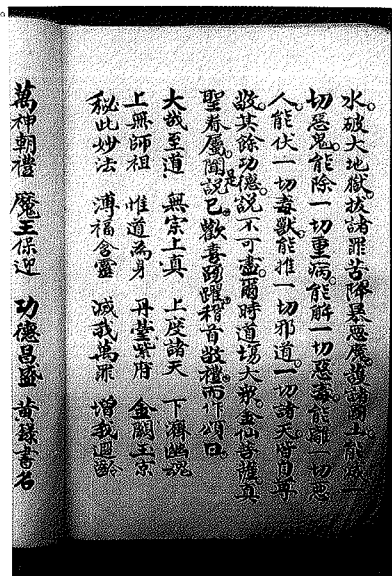 水破大地獄拔諸罪苦降暴惡魔護諸國土能滅一
切惡鬼能除一切重病能解一切惡毒能離一切惡
人能伏一切毒獸能摧一切邪道一切諸天皆自尊
敬其餘功德說不可盡爾時道場大衆金仙菩薩真
聖眷屬聞是說已歡喜踴躍稽首敬禮而作頌曰
大哉至道 無宗上真 上度諸天 下濟幽魂
上無師祖 惟道為身 丹臺紫府 金闕玉京
秘此妙法 溥福含靈 滅我萬罪 增我遐齡
萬神朝禮 魔王保迎 功德昌盛 黄籙書名